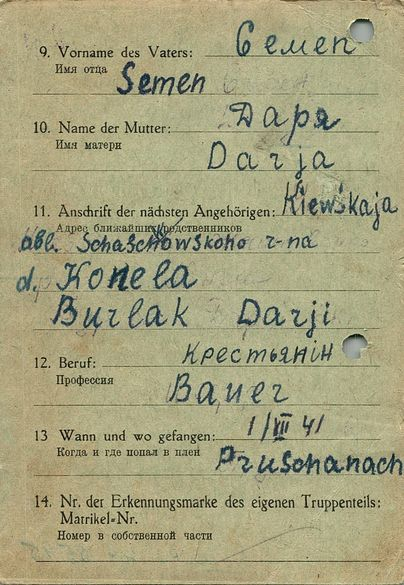 9. Vorname des Vaters: Семен
Имя отца
Semen
10. Name der Mutter: Даря
Имя матери
Darja
11. Anschrift der nächsten Angehörigen: Kiewskaja
Адрес ближайших родственников
abl. Schaschkowskoho r-na
d. Konela
Burlak Darji
12. Beruf: Крестьянін
Профессия
Bauer
13 Wann und wo gefangen: 1/VII 41
Когда и где попал в плен
Pruschanach
14. Nr. der Erkennungsmarke des eigenen Truppenteils:
Matrikel-Nr.
Номер в собственной части